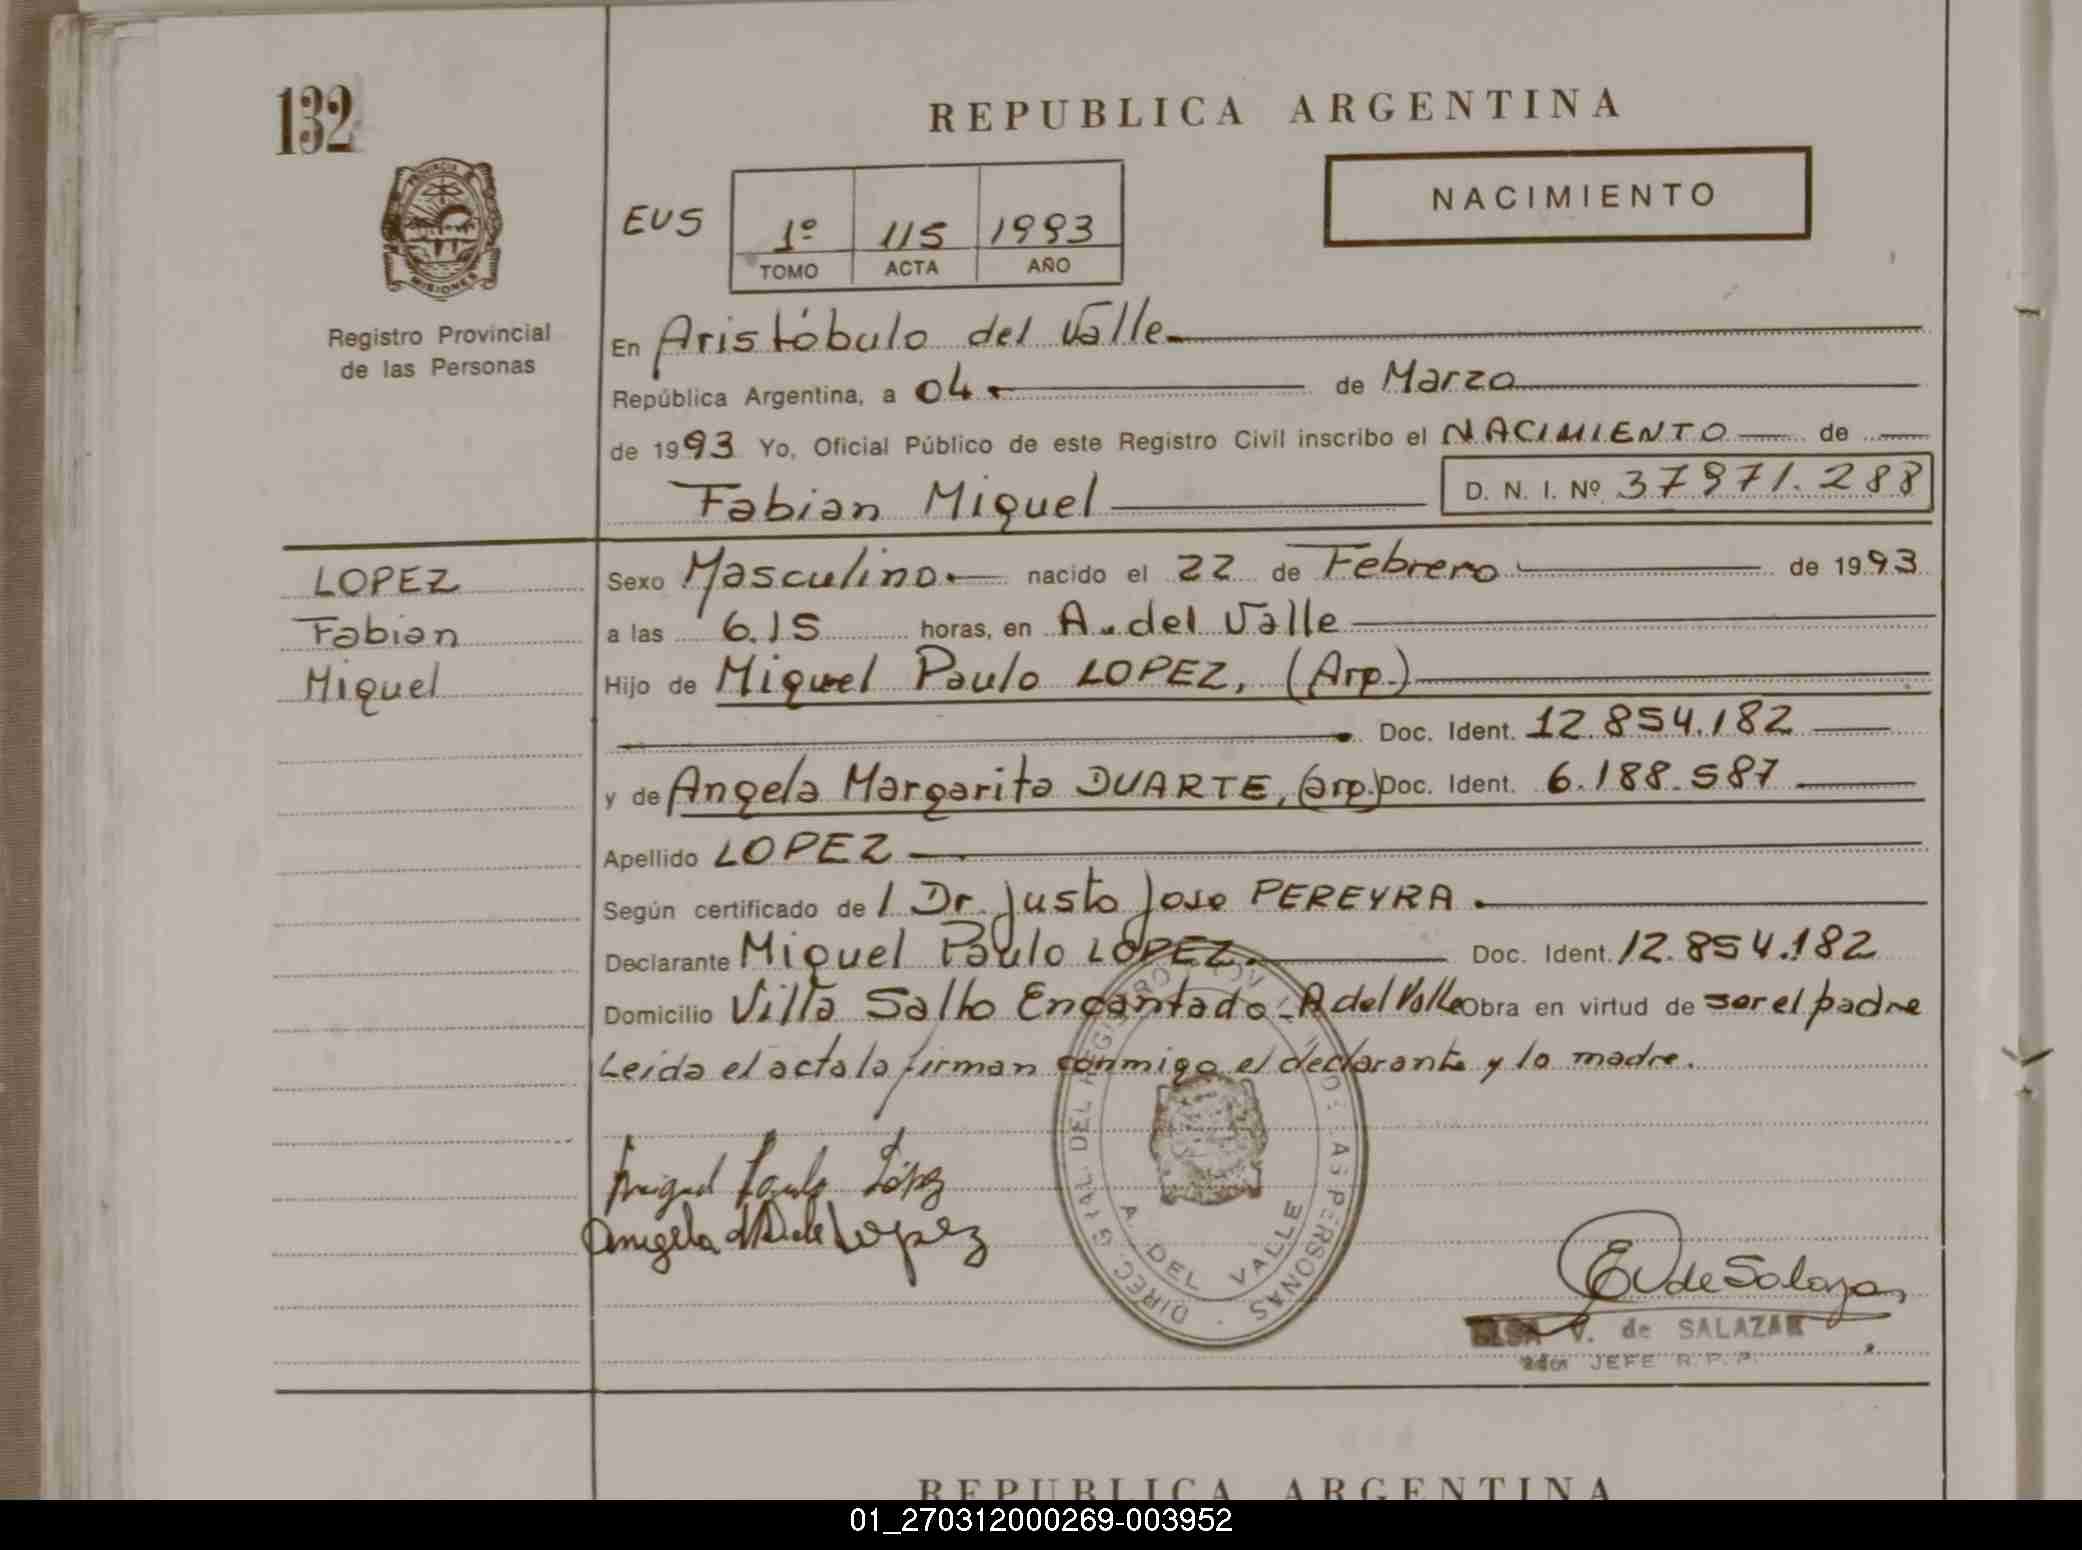 132
REPUBLICA ARGENTINA
NACIMIENTO
EUS
1º 115 1993
TOMO ACTA AÑO
PROVINCIA DE MISIONES
Registro Provincial
de las Personas
En Aristóbulo del Valle
República Argentina, a 04 de Marzo
de 1993 Yo, Oficial Público de este Registro Civil inscribo el NACIMIENTO de
Fabian Miguel D. N. I. Nº 37971.288
LOPEZ
Fabian
Miguel
Sexo Masculino nacido el 22 de Febrero de 1993
a las 6.15 horas, en A. del Valle
Hijo de Miguel Paulo LOPEZ, (Arp.)
Doc. Ident. 12.854.182
y de Angela Margarita DUARTE, (arp.) Doc. Ident. 6.188.587
Apellido LOPEZ
Según certificado de / Dr. Justo Jose PEREYRA.
Declarante Miguel Paulo LOPEZ. Doc. Ident. 12.854.182
Domicilio Villa Salto Encantado - A del Valle Obra en virtud de ser el padre
Leída el acta la firman conmigo el declarante y la madre.
Miguel Paulo López
Angela de Lopez
DIREC. GRAL. DEL REGISTRO PROVINCIAL DE LAS PERSONAS
A. DEL VALLE
E V de Salazar
ELSA V. de SALAZAR
JEFE R.P.P.
REPUBLICA ARGENTINA
01_270312000269-003952